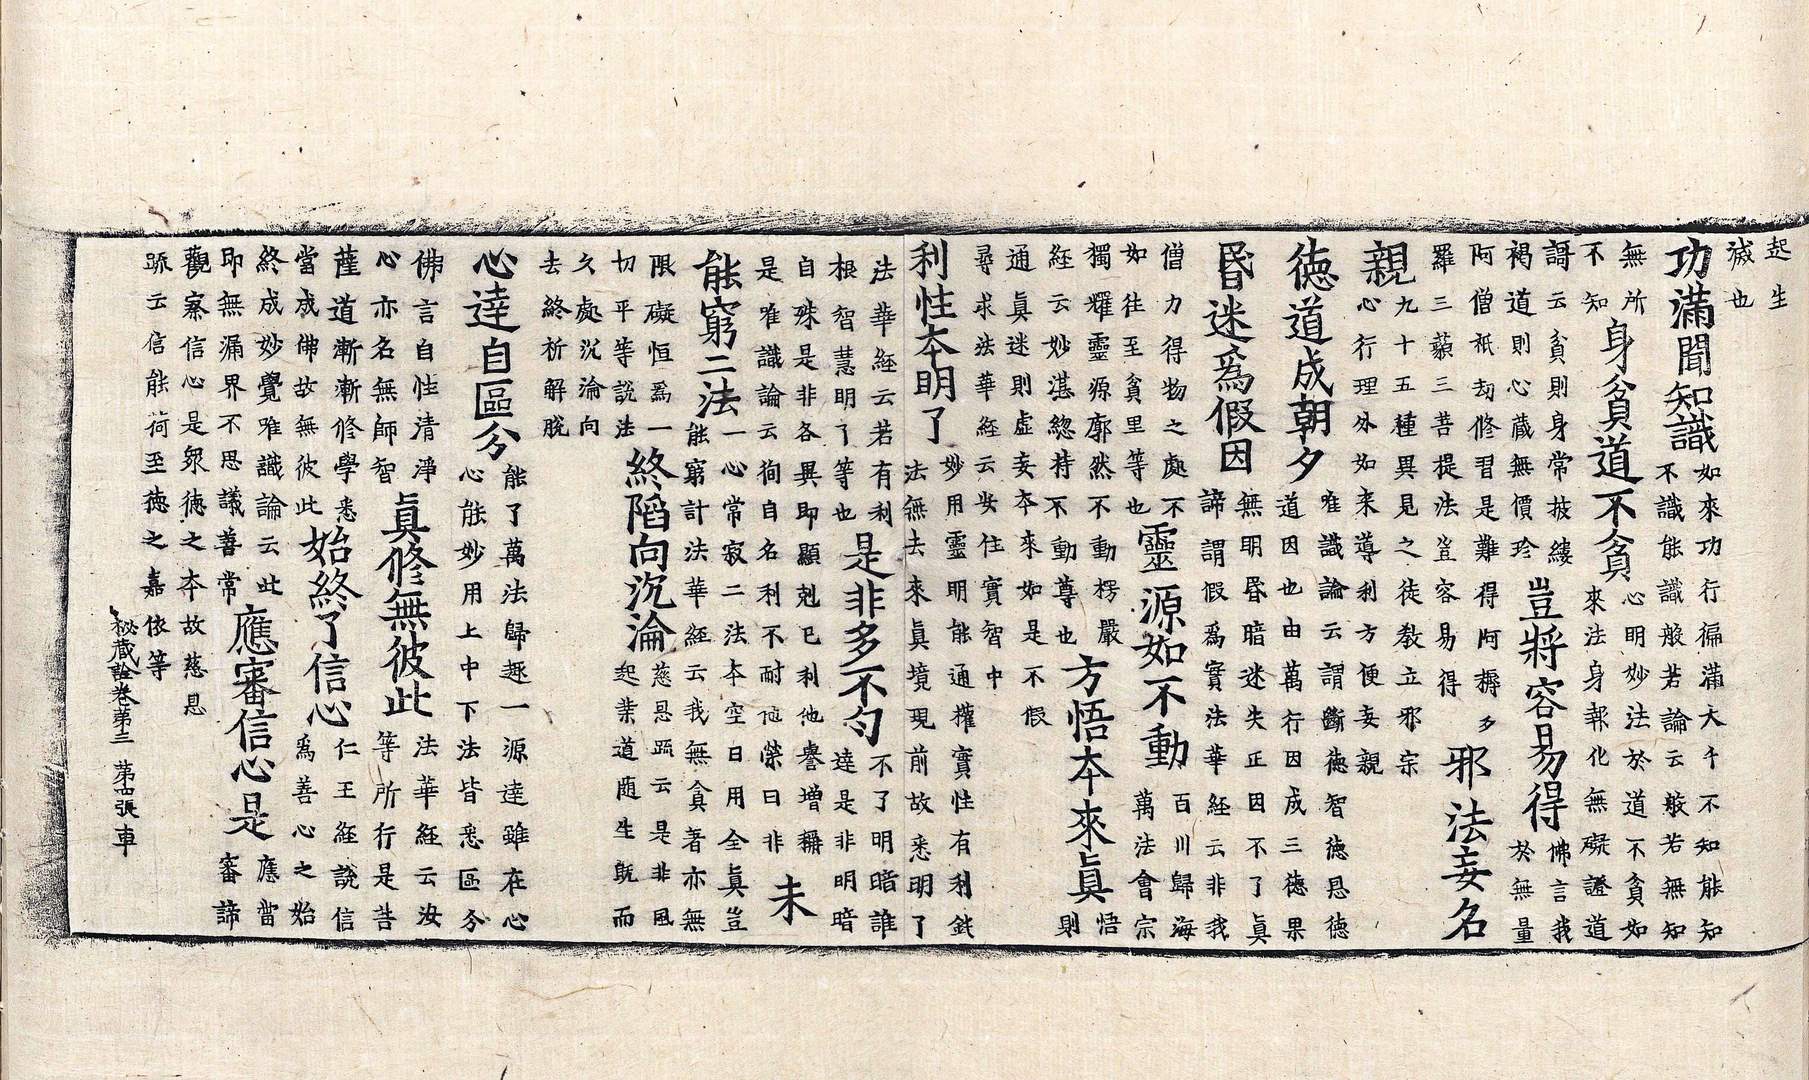 起生
滅也
功滿聞知識
如來功行徧滿大千不知能知
不識能識般若論云般若無知
無所
不知
身貧道不貧
心明妙法於道不貧如
來法身報化無礙證道
謌云貧則身常披縷
褐道則心藏無價珍
豈將容易得
佛言我
於無量
阿僧祇劫修習是難得阿耨多
羅三藐三菩提法豈容易得
邪法妄名
親
九十五種異見之徒教立邪宗
心行理外如來導利方便妄親
徳道成朝夕
唯識論云謂斷徳智徳恩徳
道因也由萬行因成三徳果
昬迷爲假因
無明昬暗迷失正因不了眞
諦謂假爲實法華経云非我
僧力得物之處不
如往至貧里等也
靈源如不動
百川歸海
萬法會宗
獨耀靈源廓然不動楞嚴
経云妙湛緫持不動尊也
方悟夲來眞
悟
則
通眞迷則虛妄夲來如是不假
尋求法華経云安住實智中
利性夲明了
妙用靈明能通權實性有利鈍
法無去來眞境現前故悉明了
法華経云若有利
根智慧明了等也
是非多不勻
不了明暗誰
達是非明暗
自殊是非各異即顯剋已利他譽增稱
是唯識論云徇自名利不耐他榮曰非
未
能窮二法
一心常寂二法夲空日用全眞豈
能窮計法華経云我無貪者亦無
限礙恒爲一
切平等說法
終陷向沉淪
慈恩䟽云是非風
起業道隨生旣而
久處沉淪向
去終祈解脫
心達自區分
能了萬法歸趣一源達雖在心
心能妙用上中下法皆悉區分
佛言自性清淨
心亦名無師智
眞修無彼此
法華経云汝
等所行是菩
薩道漸漸修學悉
當成佛故無彼此
始終了信心
仁王経說信
爲善心之始
終成妙覺唯識論云此
即無漏界不思議善常
應審信心是
應當
審諦
觀察信心是衆徳之夲故慈恩
䟽云信能荷至徳之嘉依等
秘藏詮卷第三 第四張 車